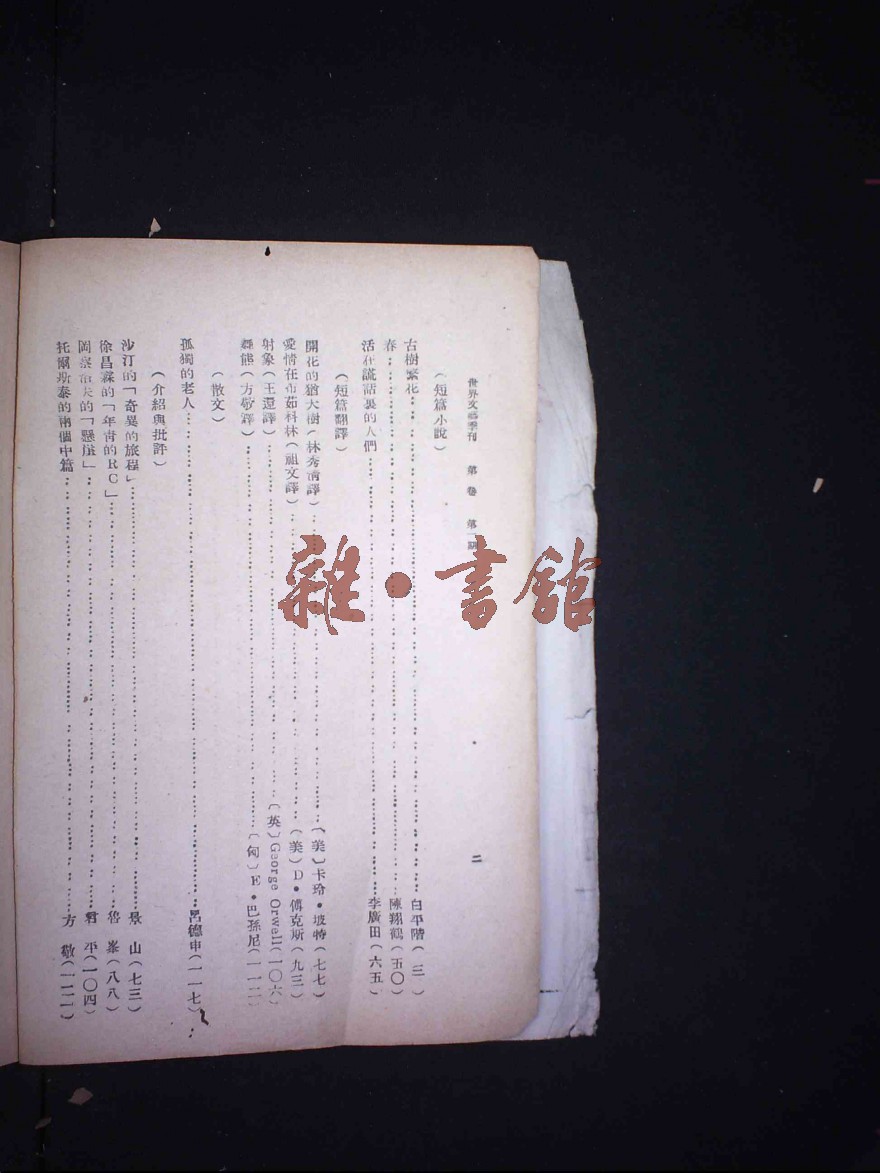 世界文藝季刊　第　卷　第一期　二
（短篇小說）
古樹繁花……白平階（三一）
春……陳翔鶴（五〇）
活在謊話裏的人們……李廣田（六五）
（短篇翻譯）
開花的猶大樹（林秀清譯）……〔美〕卡玲・坡特（七七）
愛情在布茹科林（祖文譯）……（美）D・傅克斯（九三）
射象（王還譯）……〔英〕George Orwell（一〇六）
舞熊（方敬譯）……〔匈〕E・巴孫尼（一一二）
（散文）
孤獨的老人……呂德申（一一七）
（介紹與批評）
沙汀的「奇異的旅程」……景　山（七三）
徐昌霖的「年青的RC」……魯　峯（八八）
岡察洛夫的「懸崖」……君　平（一〇四）
托爾斯泰的兩個中篇……方　敬（一二一）
雜・書館